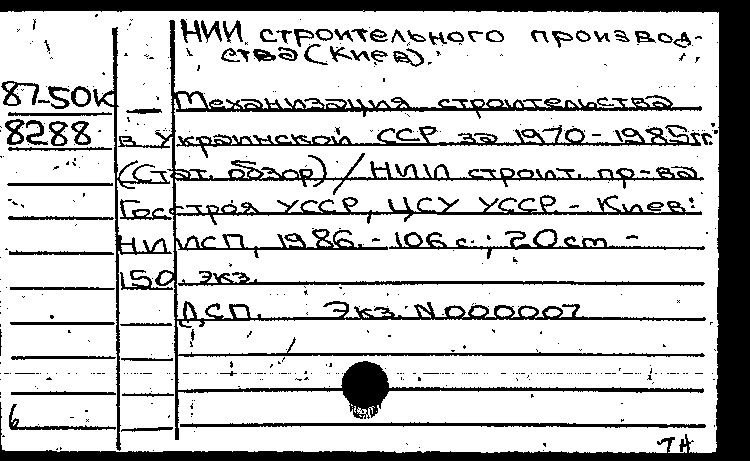 НИИ строительного производ-
ства (Киев).
87-50К
8288
— Механизация строительства
в Украинской ССР за 1970-1985гг.
(Стат. обзор) / НИИ строит. пр-ва
Госстроя УССР, ЦСУ УССР. - Киев:
НИИСП, 1986. - 106 с.; 20 cm -
150 экз.
ДСП. Экз. N000007
6